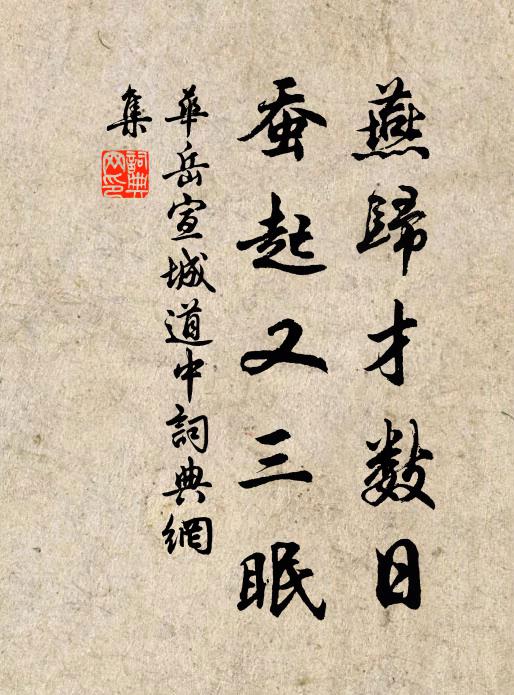 燕歸才数日
蚕起又三眠
華岳宣城道中詞典網
集
詞典
网印